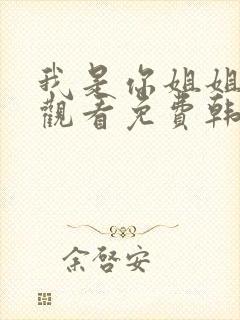 我是你姐姐
觀看免費韩
余啓安